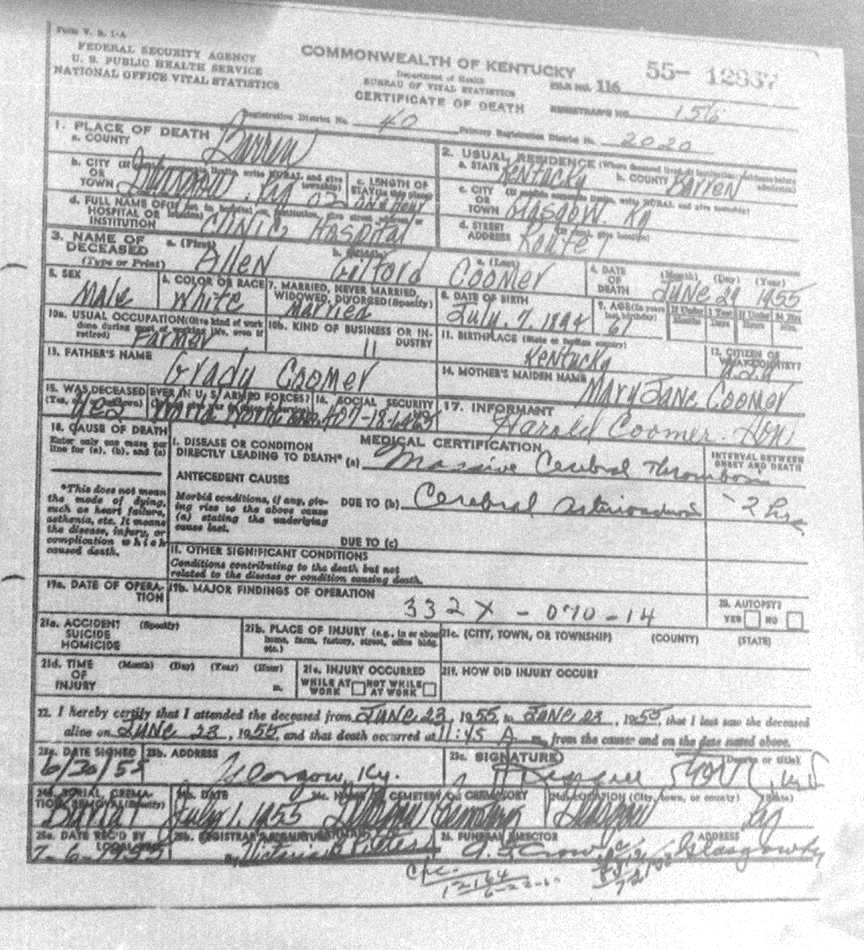 Form V. S. 1-A
FEDERAL SECURITY AGENCY
U. S. PUBLIC HEALTH SERVICE
NATIONAL OFFICE VITAL STATISTICS
COMMONWEALTH OF KENTUCKY
Department of Health
BUREAU OF VITAL STATISTICS
CERTIFICATE OF DEATH
FILE NO. 116 55- 12837
REGISTRAR'S NO. 156
Registration District No. 40 Primary Registration District No. 2020
1. PLACE OF DEATH
a. COUNTY Barren
b. CITY OR TOWN Glasgow, Ky
c. LENGTH OF STAY (in this place) one hour
d. FULL NAME OF HOSPITAL OR INSTITUTION Clinic Hospital
2. USUAL RESIDENCE
a. STATE Kentucky b. COUNTY Barren
c. CITY OR TOWN Glasgow. Ky
d. STREET ADDRESS Route 7
3. NAME OF DECEASED (Type or Print)
a. (First) Allen Gilford c. (Last) Coomer
4. DATE OF DEATH (Month) (Day) (Year) June 29 1955
5. SEX Male
6. COLOR OR RACE White
7. MARRIED, NEVER MARRIED, WIDOWED, DIVORCED (Specify) Married
8. DATE OF BIRTH July. 7. 1894
9. AGE (In years last birthday) 61
10a. USUAL OCCUPATION (Give kind of work done during most of working life, even if retired) Farmer
10b. KIND OF BUSINESS OR INDUSTRY 11
11. BIRTHPLACE Kentucky
12. CITIZEN OF WHAT COUNTRY?
13. FATHER'S NAME Grady Coomer
14. MOTHER'S MAIDEN NAME Mary Jane Coomer
15. WAS DECEASED EVER IN U. S. ARMED FORCES? Yes
16. SOCIAL SECURITY
17. INFORMANT Harold Coomer
18. CAUSE OF DEATH
Enter only one cause per line for (a), (b), and (c)
MEDICAL CERTIFICATION
I. DISEASE OR CONDITION DIRECTLY LEADING TO DEATH* (a) Massive Cerebral Thrombosis
INTERVAL BETWEEN ONSET AND DEATH
2 hrs
ANTECEDENT CAUSES
Morbid conditions, if any, giving rise to the above cause (a) stating the underlying cause last.
DUE TO (b) Cerebral
DUE TO (c)
*This does not mean the mode of dying, such as heart failure, asthenia, etc. It means the disease, injury, or complication which caused death.
II. OTHER SIGNIFICANT CONDITIONS
Conditions contributing to the death but not related to the disease or condition causing death.
19a. DATE OF OPERATION
19b. MAJOR FINDINGS OF OPERATION
332X - 070 - 14
20. AUTOPSY?
YES NO
21a. ACCIDENT (Specify)
SUICIDE
HOMICIDE
21b. PLACE OF INJURY (e.g., in or about home, farm, factory, street, office bldg. etc.)
21c. (CITY, TOWN, OR TOWNSHIP) (COUNTY) (STATE)
21d. TIME OF INJURY (Month) (Day) (Year) (Hour) m.
21e. INJURY OCCURRED
WHILE AT WORK NOT WHILE AT WORK
21f. HOW DID INJURY OCCUR?
22. I hereby certify that I attended the deceased from June 23, 1955, to June 23, 1955, that I last saw the deceased
alive on June 23, 1955, and that death occurred at 11:45 A m., from the cause and on the date stated above.
23a. DATE SIGNED 6/30/55
23b. ADDRESS Glasgow, Ky.
23c. SIGNATURE (Degree or title)
24a. BURIAL, CREMATION, REMOVAL (Specify) Burial
24b. DATE July 1. 1955
24c. NAME OF CEMETERY OR CREMATORY Cemetery
24d. LOCATION (City, town, or county) (State) Glasgow Ky
25a. DATE REC'D BY LOCAL REG. 7-6-1955
25b. REGISTRAR'S SIGNATURE
By Victoria
26. FUNERAL DIRECTOR Crow
ADDRESS Glasgow Ky
12164